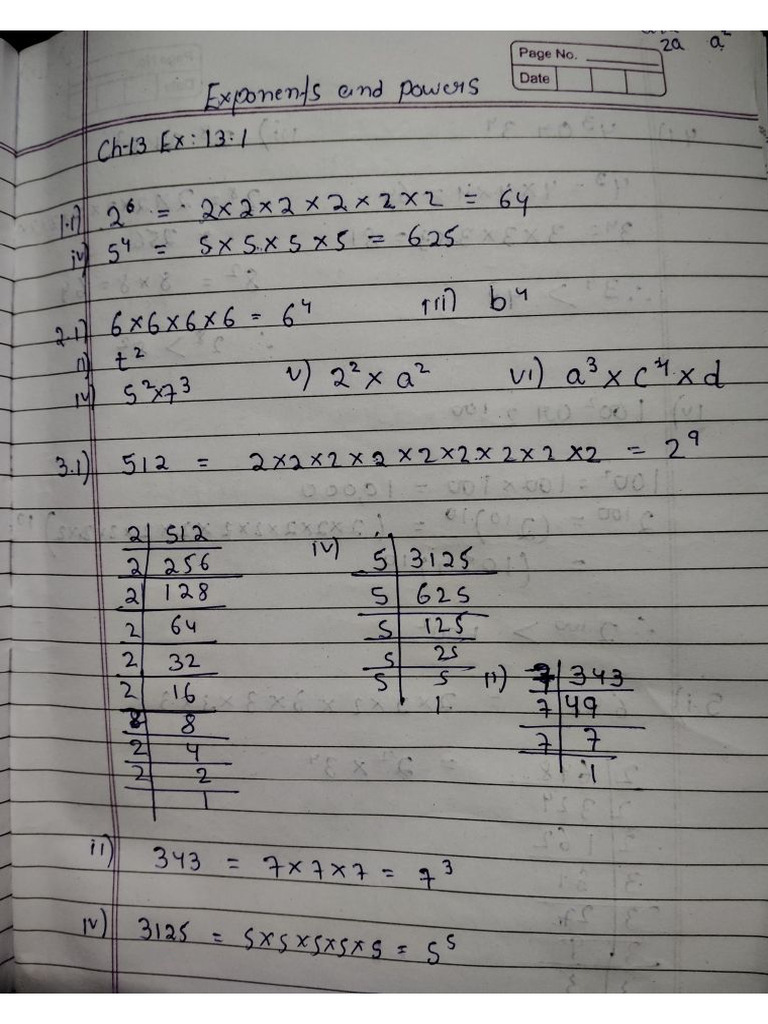 2a a²
Page No.
Date
Exponents and powers
Ch-13 Ex: 13.1
1.i) 2⁶ = 2×2×2×2×2×2 = 64
iv) 5⁴ = 5×5×5×5 = 625
2.i) 6×6×6×6 = 6⁴ iii) b⁴
ii) t²
iv) 5²×7³ v) 2²×a² vi) a³×c⁴×d
3.i) 512 = 2×2×2×2×2×2×2×2×2 = 2⁹
2 | 512
2 | 256
2 | 128
2 | 64
2 | 32
2 | 16
2 | 8
2 | 4
2 | 2
1
iv) 5 | 3125
5 | 625
5 | 125
5 | 25
5 | 5
1
ii) 7 | 343
7 | 49
7 | 7
1
ii) 343 = 7×7×7 = 7³
iv) 3125 = 5×5×5×5×5 = 5⁵